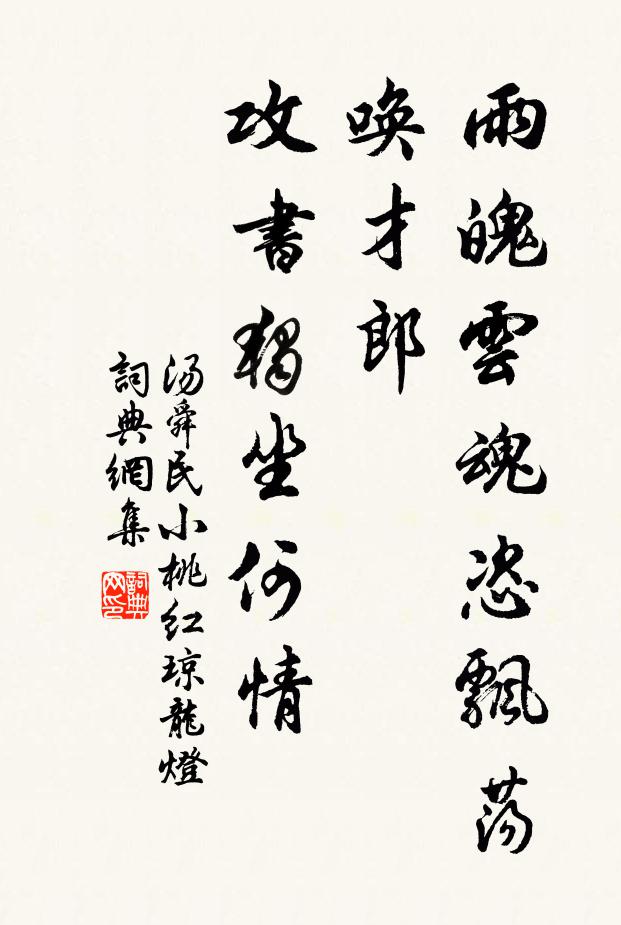 雨魄雲魂恣飄蕩
喚才郎
攻書獨坐何情
湯舜民小桃红琼龍燈
詞典網集
詞典
网印